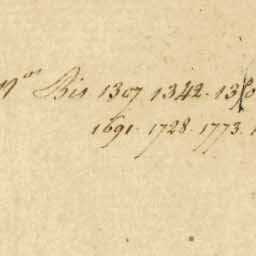 N.os Bis 1307 1342. 13
1691. 1728. 1773.